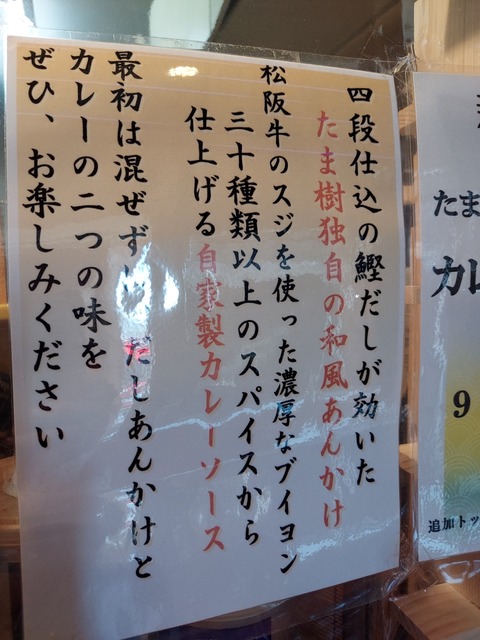 四段仕込の鰹だしが効いた
たま樹独自の和風あんかけ
松阪牛のスジを使った濃厚なブイヨン
三十種類以上のスパイスから
仕上げる自家製カレーソース
最初は混ぜず
だしあんかけと
カレーの二つの味を
ぜひ、お楽しみください
たま
カレ
9
追加トッ